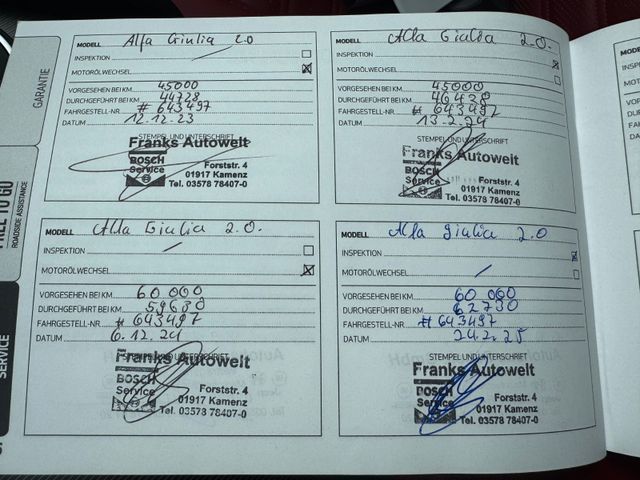 GARANTIE
FREE TO GO
ROADSIDE ASSISTANCE
SERVICE
MODELL Alfa Giulia 2.0
INSPEKTION
MOTORÖLWECHSEL
VORGESEHEN BEI KM 45000
DURCHGEFÜHRT BEI KM 44728
FAHRGESTELL-NR # 643497
DATUM 12.12.23
STEMPEL UND UNTERSCHRIFT
Franks Autowelt
BOSCH
Service
Forststr. 4
01917 Kamenz
Tel. 03578 78407-0
MODELL Alfa Giulia 2.0.
INSPEKTION
MOTORÖLWECHSEL
VORGESEHEN BEI KM 45000
DURCHGEFÜHRT BEI KM 46430
FAHRGESTELL-NR # 643497
DATUM 13.2.24
STEMPEL UND UNTERSCHRIFT
Franks Autowelt
BOSCH
Service
Forststr. 4
01917 Kamenz
Tel. 03578 78407-0
MODELL Alfa Giulia 2.0.
INSPEKTION
MOTORÖLWECHSEL
VORGESEHEN BEI KM 60 000
DURCHGEFÜHRT BEI KM 59630
FAHRGESTELL-NR # 643497
DATUM 6.12.24
STEMPEL UND UNTERSCHRIFT
Franks Autowelt
BOSCH
Service
Forststr. 4
01917 Kamenz
Tel. 03578 78407-0
MODELL Alfa Giulia 2.0
INSPEKTION
MOTORÖLWECHSEL
VORGESEHEN BEI KM 60 000
DURCHGEFÜHRT BEI KM 62730
FAHRGESTELL-NR # 643497
DATUM 24.2.25
STEMPEL UND UNTERSCHRIFT
Franks Autowelt
BOSCH
Service
Forststr. 4
01917 Kamenz
Tel. 03578 78407-0